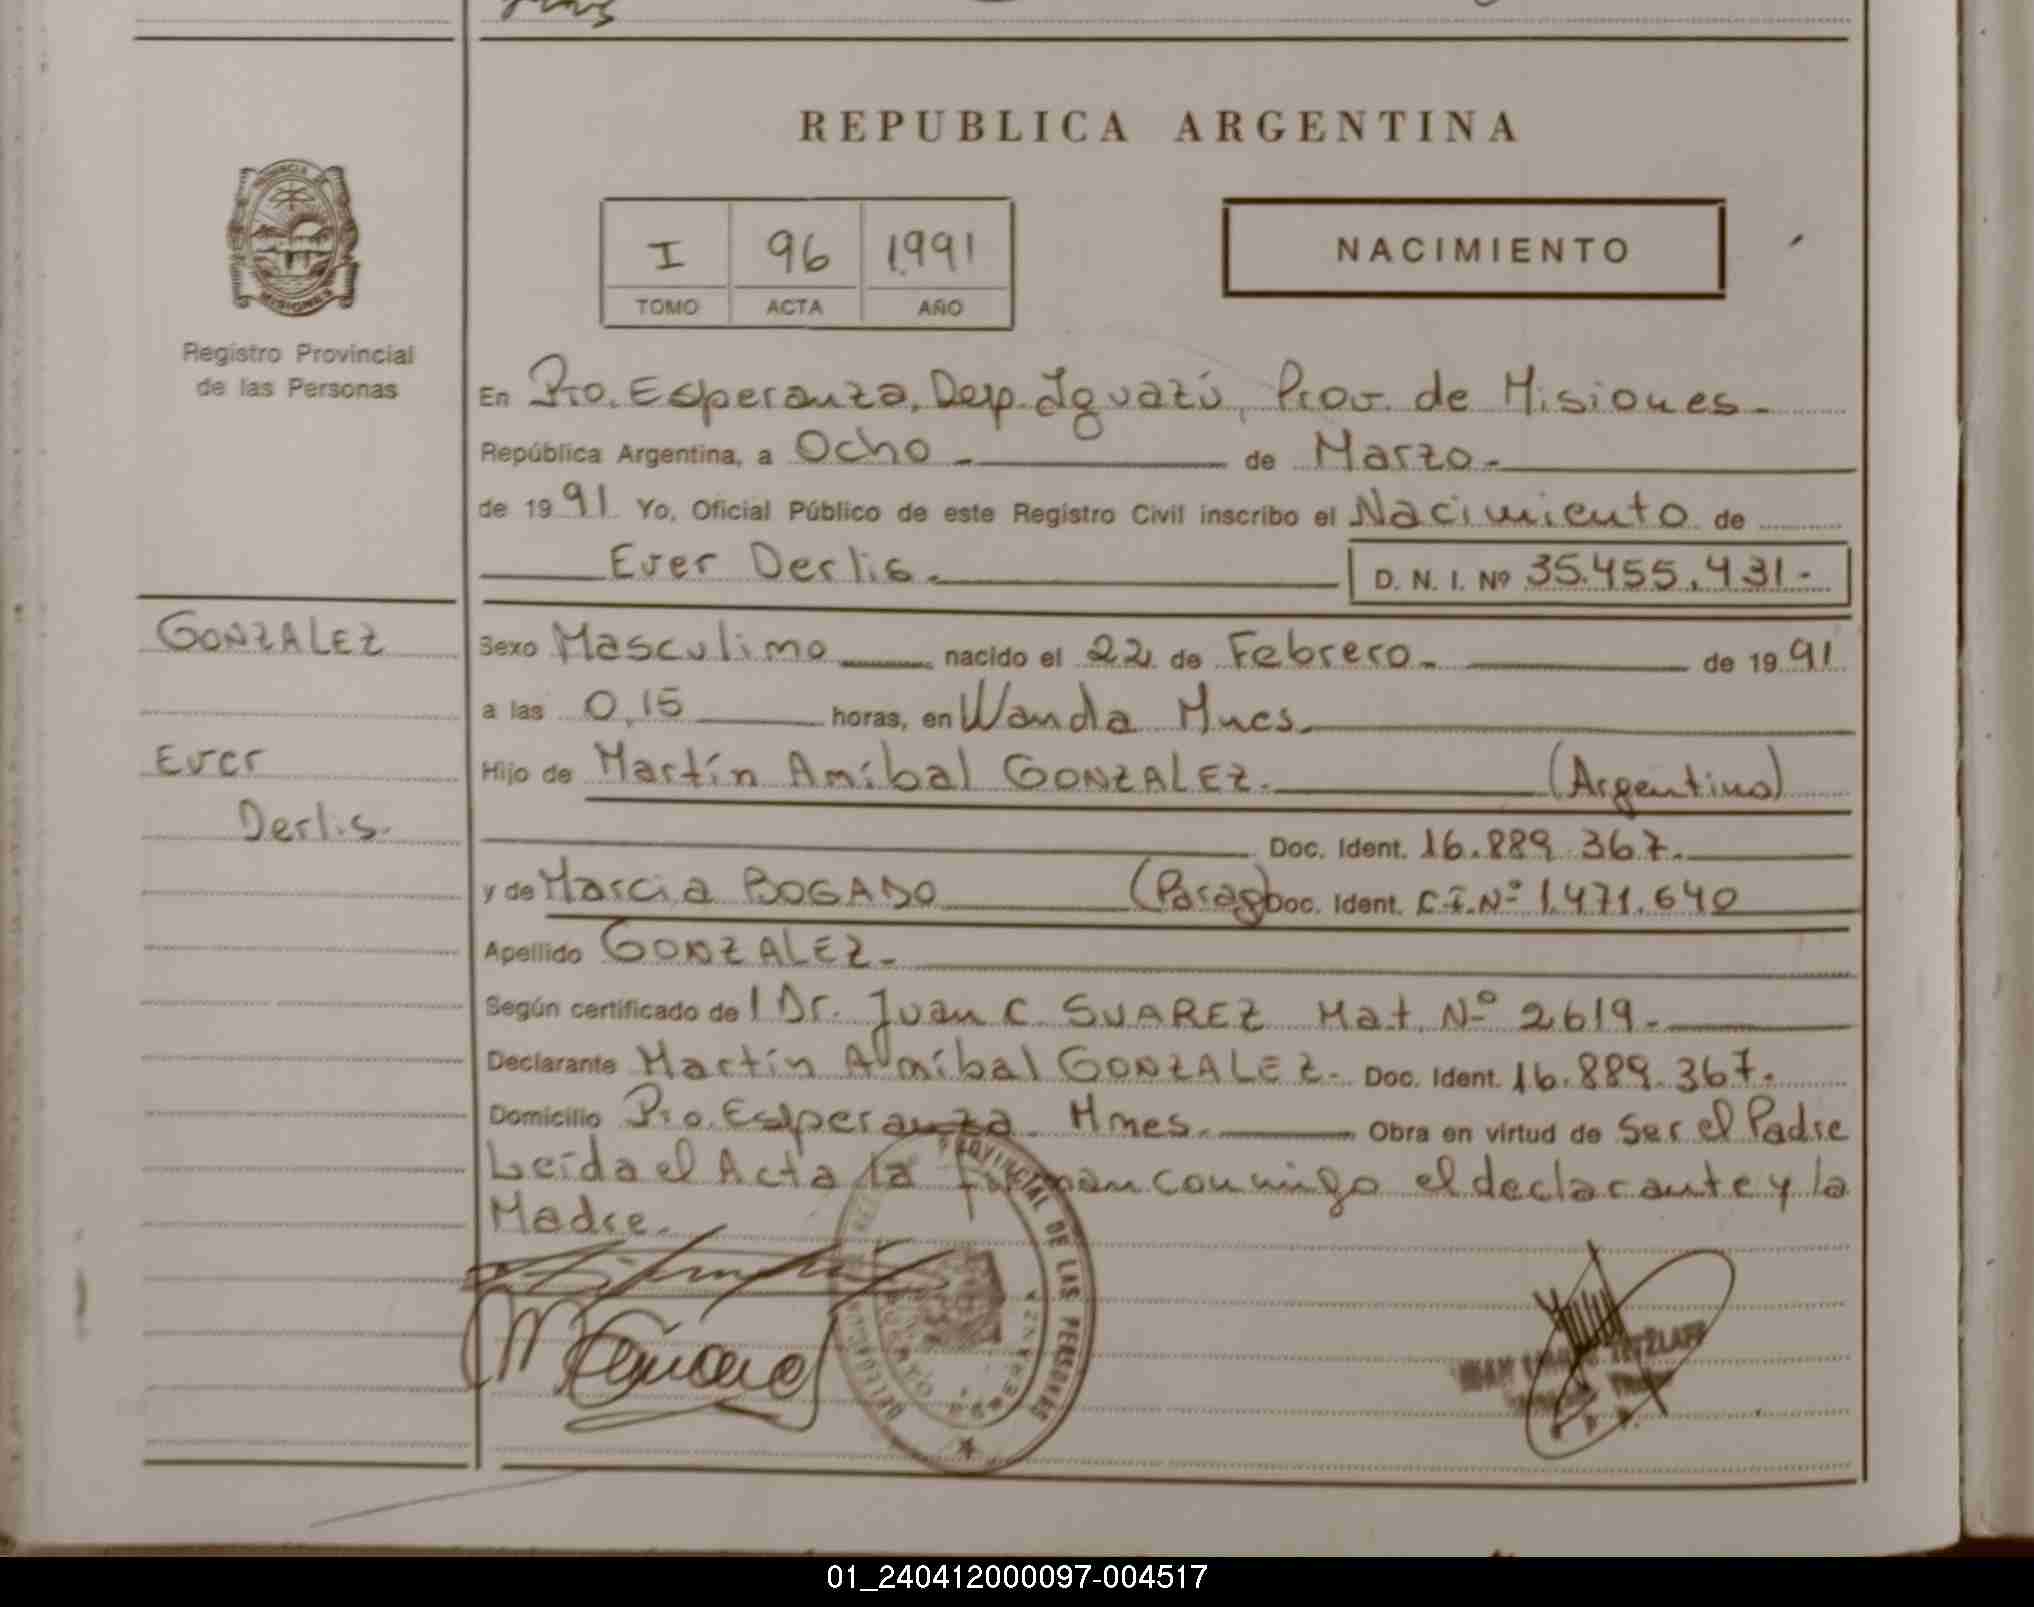 REPUBLICA ARGENTINA
PROVINCIA DE
MISIONES
I 96 1.991
TOMO ACTA AÑO
NACIMIENTO
Registro Provincial
de las Personas
En Pto. Esperanza, Dep. Iguazú, Prov. de Misiones.
República Argentina, a Ocho de Marzo.
de 1991 Yo, Oficial Público de este Registro Civil inscribo el Nacimiento de
Ever Derlis. D. N. I. Nº 35.455.431.-
GONZALEZ
Sexo Masculino nacido el 22 de Febrero. de 1991
a las 0,15 horas, en Wanda Mnes.
Ever
Hijo de Martín Aníbal GONZALEZ. (Argentino)
Derlis.
Doc. Ident. 16.889.367.
y de Marcia BOGADO (Parag) Doc. Ident. C.I.Nº 1.471.640
Apellido GONZALEZ.
Según certificado de l Dr. Juan C. SUAREZ Mat. Nº 2619.
Declarante Martín Aníbal GONZALEZ. Doc. Ident. 16.889.367.
Domicilio Pto. Esperanza Mnes. Obra en virtud de Ser el Padre
Leída el Acta la firman conmigo el declarante y la
Madre.
PROVINCIAL DE LAS PERSONAS
01_240412000097-004517